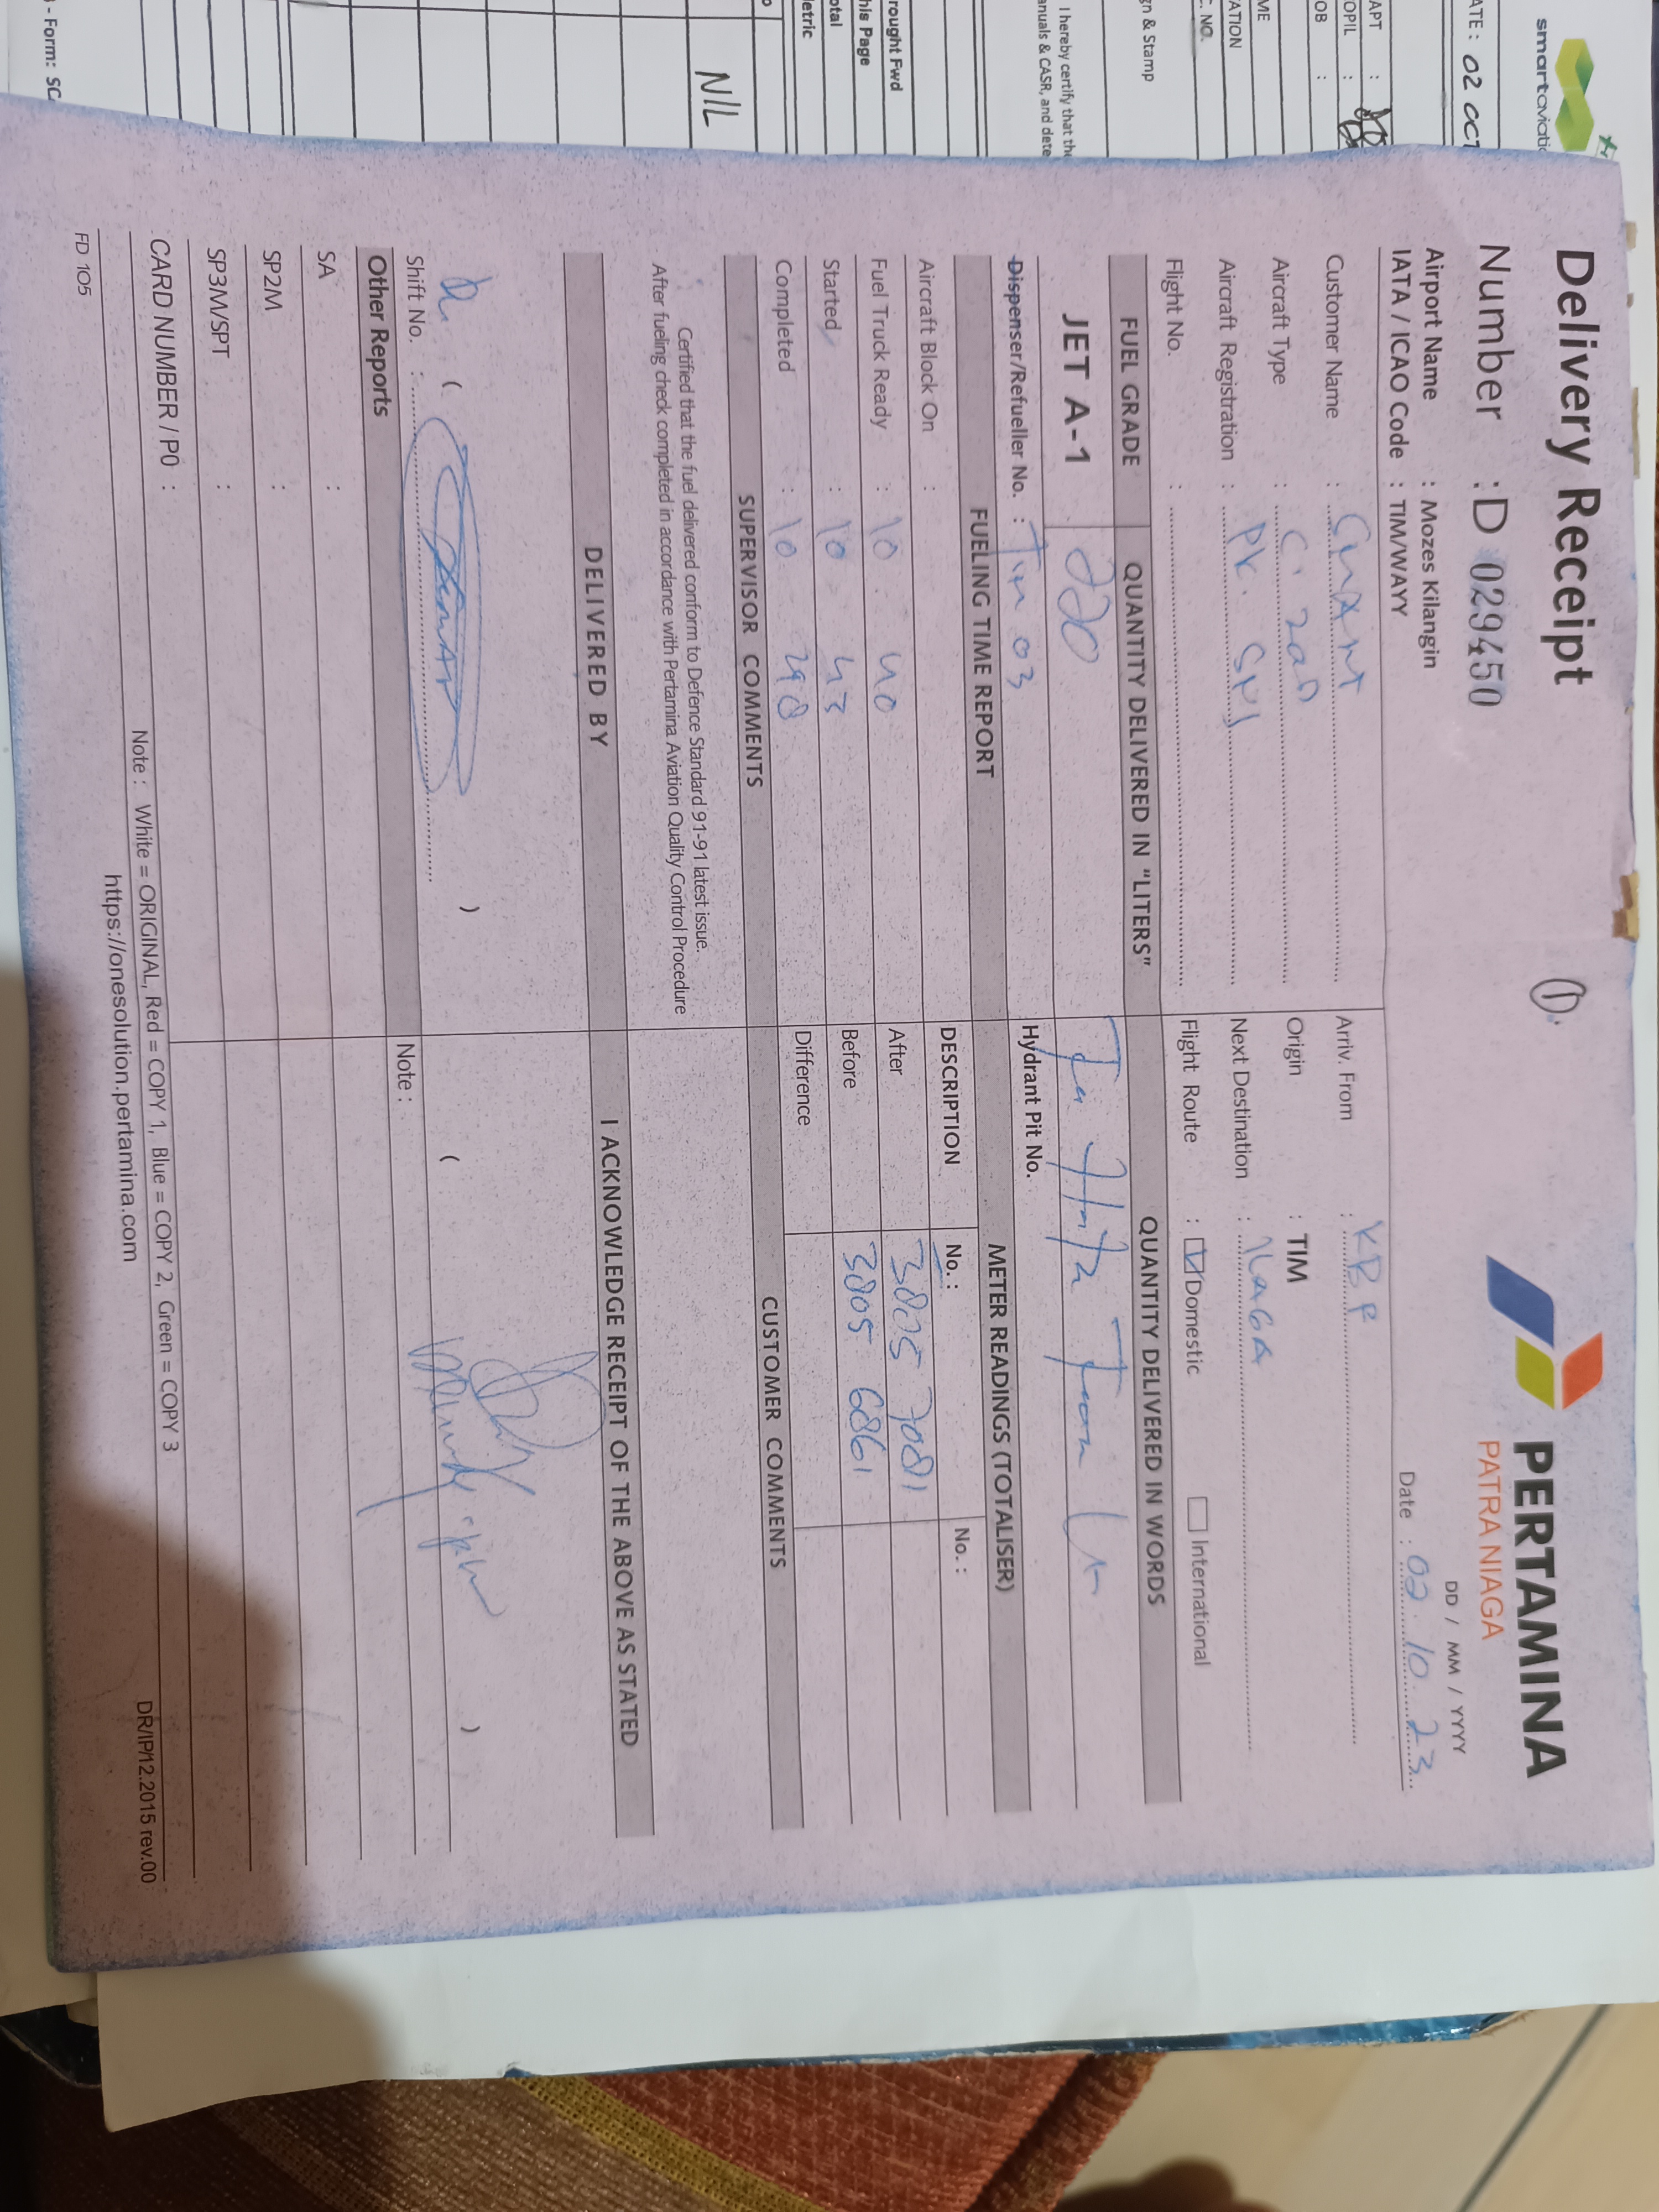 Delivery Receipt
PERTAMINA
PATRA NIAGA
Number : D 029450
DD / MM / YYYY
Date : 02.10.23
Airport Name : Mozes Kilangin
IATA / ICAO Code : TIM/WAYY
Customer Name :
Arriv. From :
Aircraft Type :
Origin : TIM
Aircraft Registration : PK.
Next Destination :
Flight No. :
Flight Route : Domestic International
FUEL GRADE
QUANTITY DELIVERED IN "LITERS"
QUANTITY DELIVERED IN WORDS
JET A-1
220
Dispenser/Refueller No. : Tim 03
Hydrant Pit No.
FUELING TIME REPORT
METER READINGS (TOTALISER)
Aircraft Block On :
DESCRIPTION No. : No. :
Fuel Truck Ready : 10 40
After 3805 7081
Started : 10 43
Before 3805 6861
Completed : 10
Difference
SUPERVISOR COMMENTS
CUSTOMER COMMENTS
Certified that the fuel delivered conform to Defence Standard 91-91 latest issue.
After fueling check completed in accordance with Pertamina Aviation Quality Control Procedure
DELIVERED BY
I ACKNOWLEDGE RECEIPT OF THE ABOVE AS STATED
( )
( )
Shift No. :
Other Reports
Note :
SA :
SP2M :
SP3M/SPT :
CARD NUMBER / P0 :
Note : White = ORIGINAL, Red = COPY 1, Blue = COPY 2, Green = COPY 3
https://onesolution.pertamina.com
DR/IP/12.2015 rev.00
FD 105
smartaviatio
ATE : 02 OCT
APT :
OPIL :
OB :
ME
ATION
. NO.
gn & Stamp
I hereby certify that the
anuals & CASR, and dete
rought Fwd
his Page
otal
etric
NIL
- Form: SC